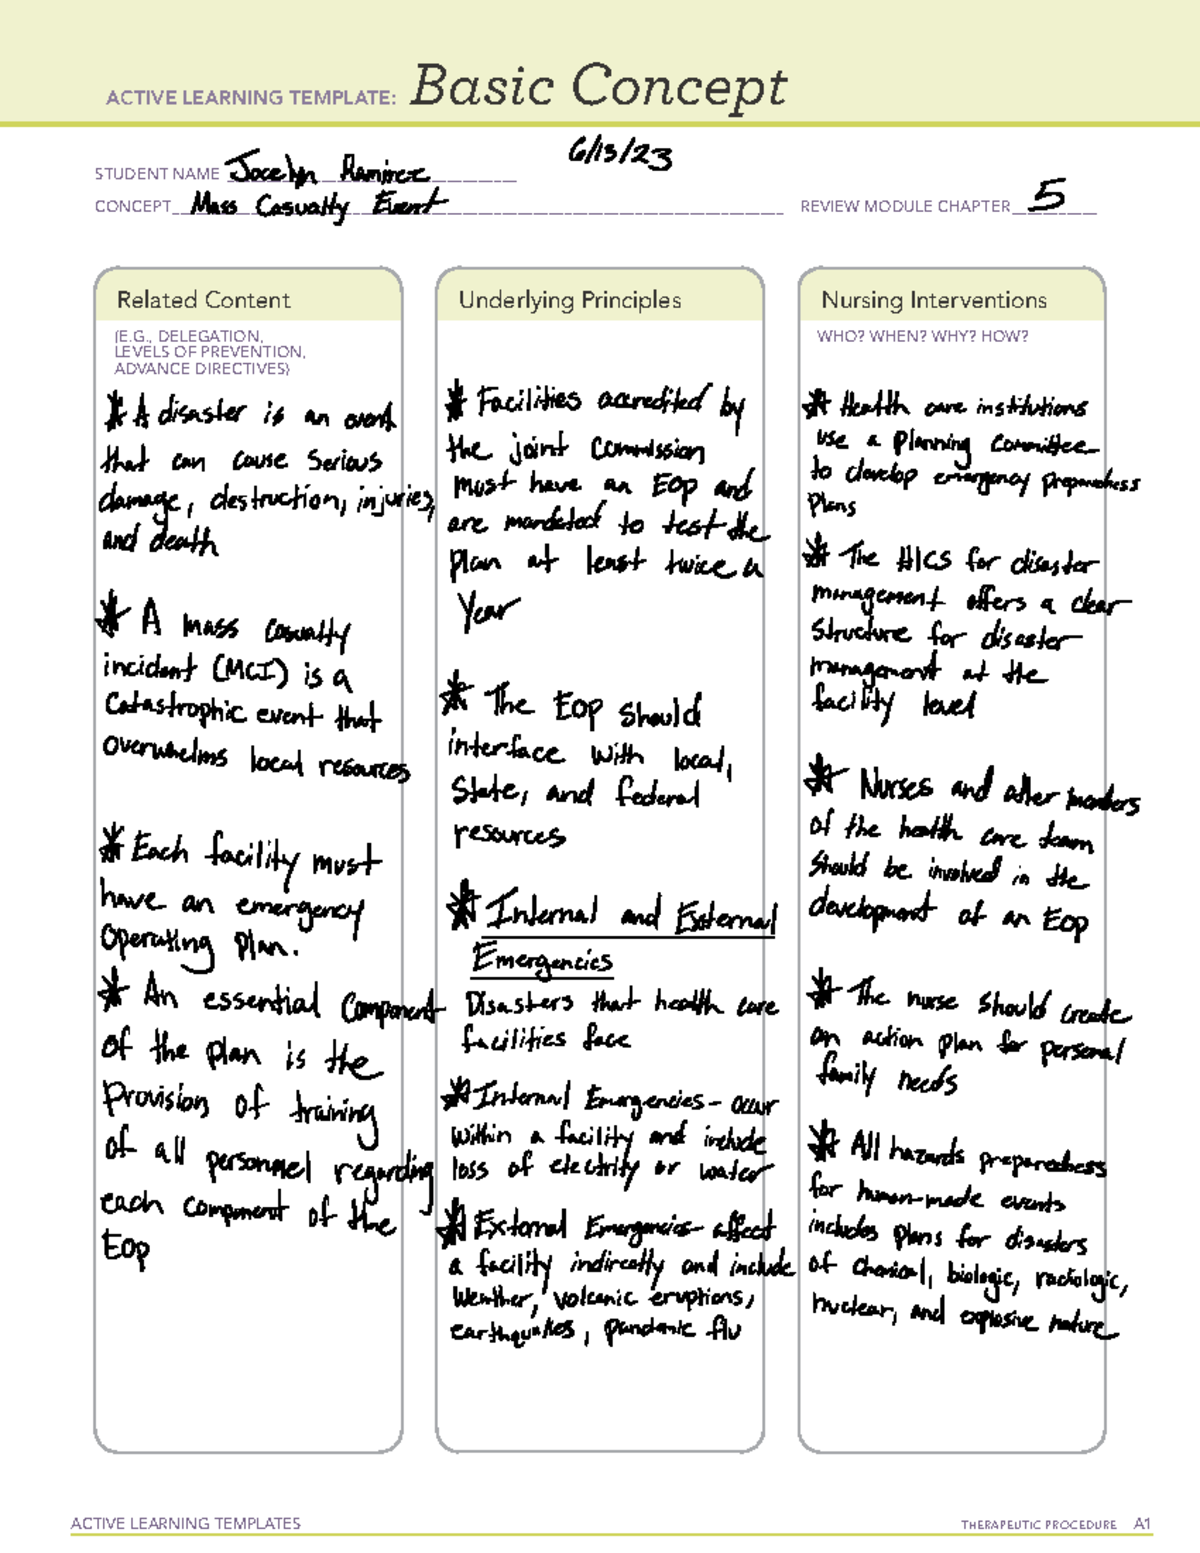 ACTIVE LEARNING TEMPLATE: Basic Concept
6/13/23
STUDENT NAME Jocelyn Ramirez
CONCEPT Mass Casualty Event
REVIEW MODULE CHAPTER 5
Related Content
(E.G., DELEGATION,
LEVELS OF PREVENTION,
ADVANCE DIRECTIVES)
* A disaster is an event
that can cause serious
damage, destruction, injuries,
and death
* A mass casualty
incident (MCI) is a
catastrophic event that
overwhelms local resources
* Each facility must
have an emergency
operating plan.
* An essential component
of the plan is the
provision of training
of all personnel regarding
each component of the
EOP
Underlying Principles
* Facilities accredited by
the joint commission
must have an EOP and
are mandated to test the
plan at least twice a
year
* The EOP should
interface with local,
state, and federal
resources
* Internal and External
Emergencies
Disasters that health care
facilities face
* Internal Emergencies - occur
within a facility and include
loss of electrity or water
* External Emergencies - affect
a facility indirectly and include
weather, volcanic eruptions,
earthquakes, pandemic flu
Nursing Interventions
WHO? WHEN? WHY? HOW?
* Health care institutions
use a planning committee
to develop emergency preparedness
plans
* The HICS for disaster
management offers a clear
structure for disaster
management at the
facility level
* Nurses and other members
of the health care team
should be involved in the
development of an EOP
* The nurse should create
an action plan for personal
family needs
* All hazards preparedness
for human-made events
includes plans for disasters
of chemical, biologic, radiologic,
nuclear, and explosive nature
ACTIVE LEARNING TEMPLATES
THERAPEUTIC PROCEDURE A1